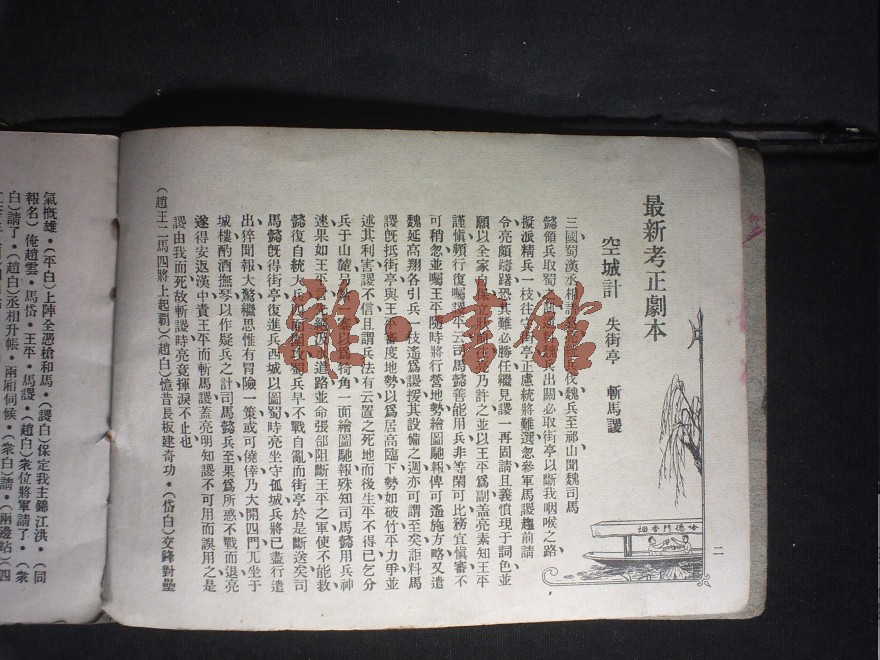 最新考正劇本
空城計　失街亭　斬馬謖
三國蜀漢丞相諸伐魏兵至祁山聞魏司馬
懿領兵取蜀之兵出關必取街亭以斷我咽喉之路
擬派精兵一枝往街亭正慮統將難選忽參軍馬謖趨前請
令亮頗躊躇恐其難必勝任繼見謖一再固請且義憤現于詞色並
願以全家亮乃許之並以王平爲副蓋亮素知王平
謹愼頻行復囑謖平云司馬懿善能用兵非等閑可比務宜愼審不
可稍忽並囑王平隨時將行營地勢繪圖馳報俾可遙施方略又遣
魏延高翔各引兵一枝遙爲謖援其設備之週亦可謂至矣詎料馬
謖旣抵街亭與王平審度地勢以爲居高臨下勢如破竹平力爭並
述其利害謖不信且謂兵法有云置之死地而後生平不得已乞分
兵于山麓以爲犄角一面繪圖馳報殊知司馬懿用兵神
速果如王平水道路並命張郃阻斷王平之軍使不能救
懿復自統大兵四面圍攻蜀兵早不戰自亂而街亭於是斷送矣司
馬懿旣得街亭復進兵西城以圖蜀時亮坐守孤城兵將已盡行遣
出猝聞報大驚繼思惟有冒險一策或可僥倖乃大開四門兀坐于
城樓酌酒撫琴以作疑兵之計司馬懿兵至果爲所惑不戰而退亮
遂得安返漢中責王平而斬馬謖蓋亮明知謖不可用而誤用之是
謖由我而死故斬謖時亮竟揮淚不止也
（趙王二馬四將上起霸）（趙白）憶昔長板建奇功・（岱白）交鋒對壘
氣慨雄・（平白）上陣全憑槍和馬・（謖白）保定我主錦江洪・（同
報名）俺趙雲・馬岱・王平・馬謖・（趙白）衆位將軍請了・（衆
白）請了・（趙白）丞相升帳・兩廂伺候・（衆白）請・（兩邊站）（四
哈德門香烟
二
雅・書館